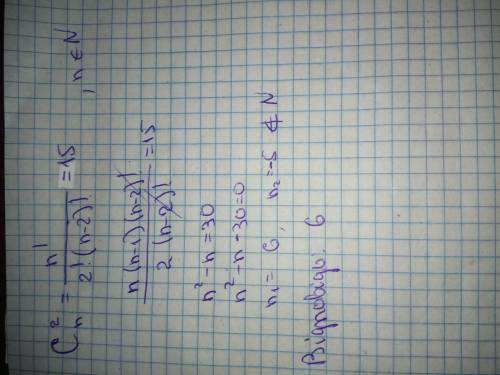 C²ₙ = n! / 2! (n-2)! = 15 , n ∈ N
n (n-1) (n-2)! / 2 (n-2)! = 15
n² - n = 30
n² - n - 30 = 0
n₁ = 6, n₂ = -5 ∉ N
Відповідь: 6